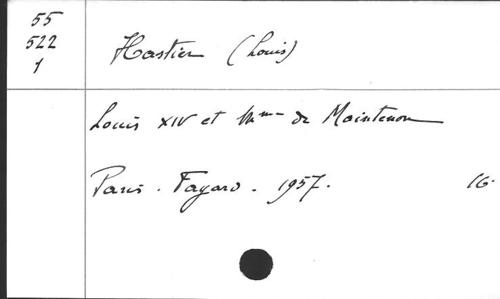 55
522
1
Hastier (Louis)
Louis XIV et Mme de Maintenon
Paris. Fayard. 1957. 16.